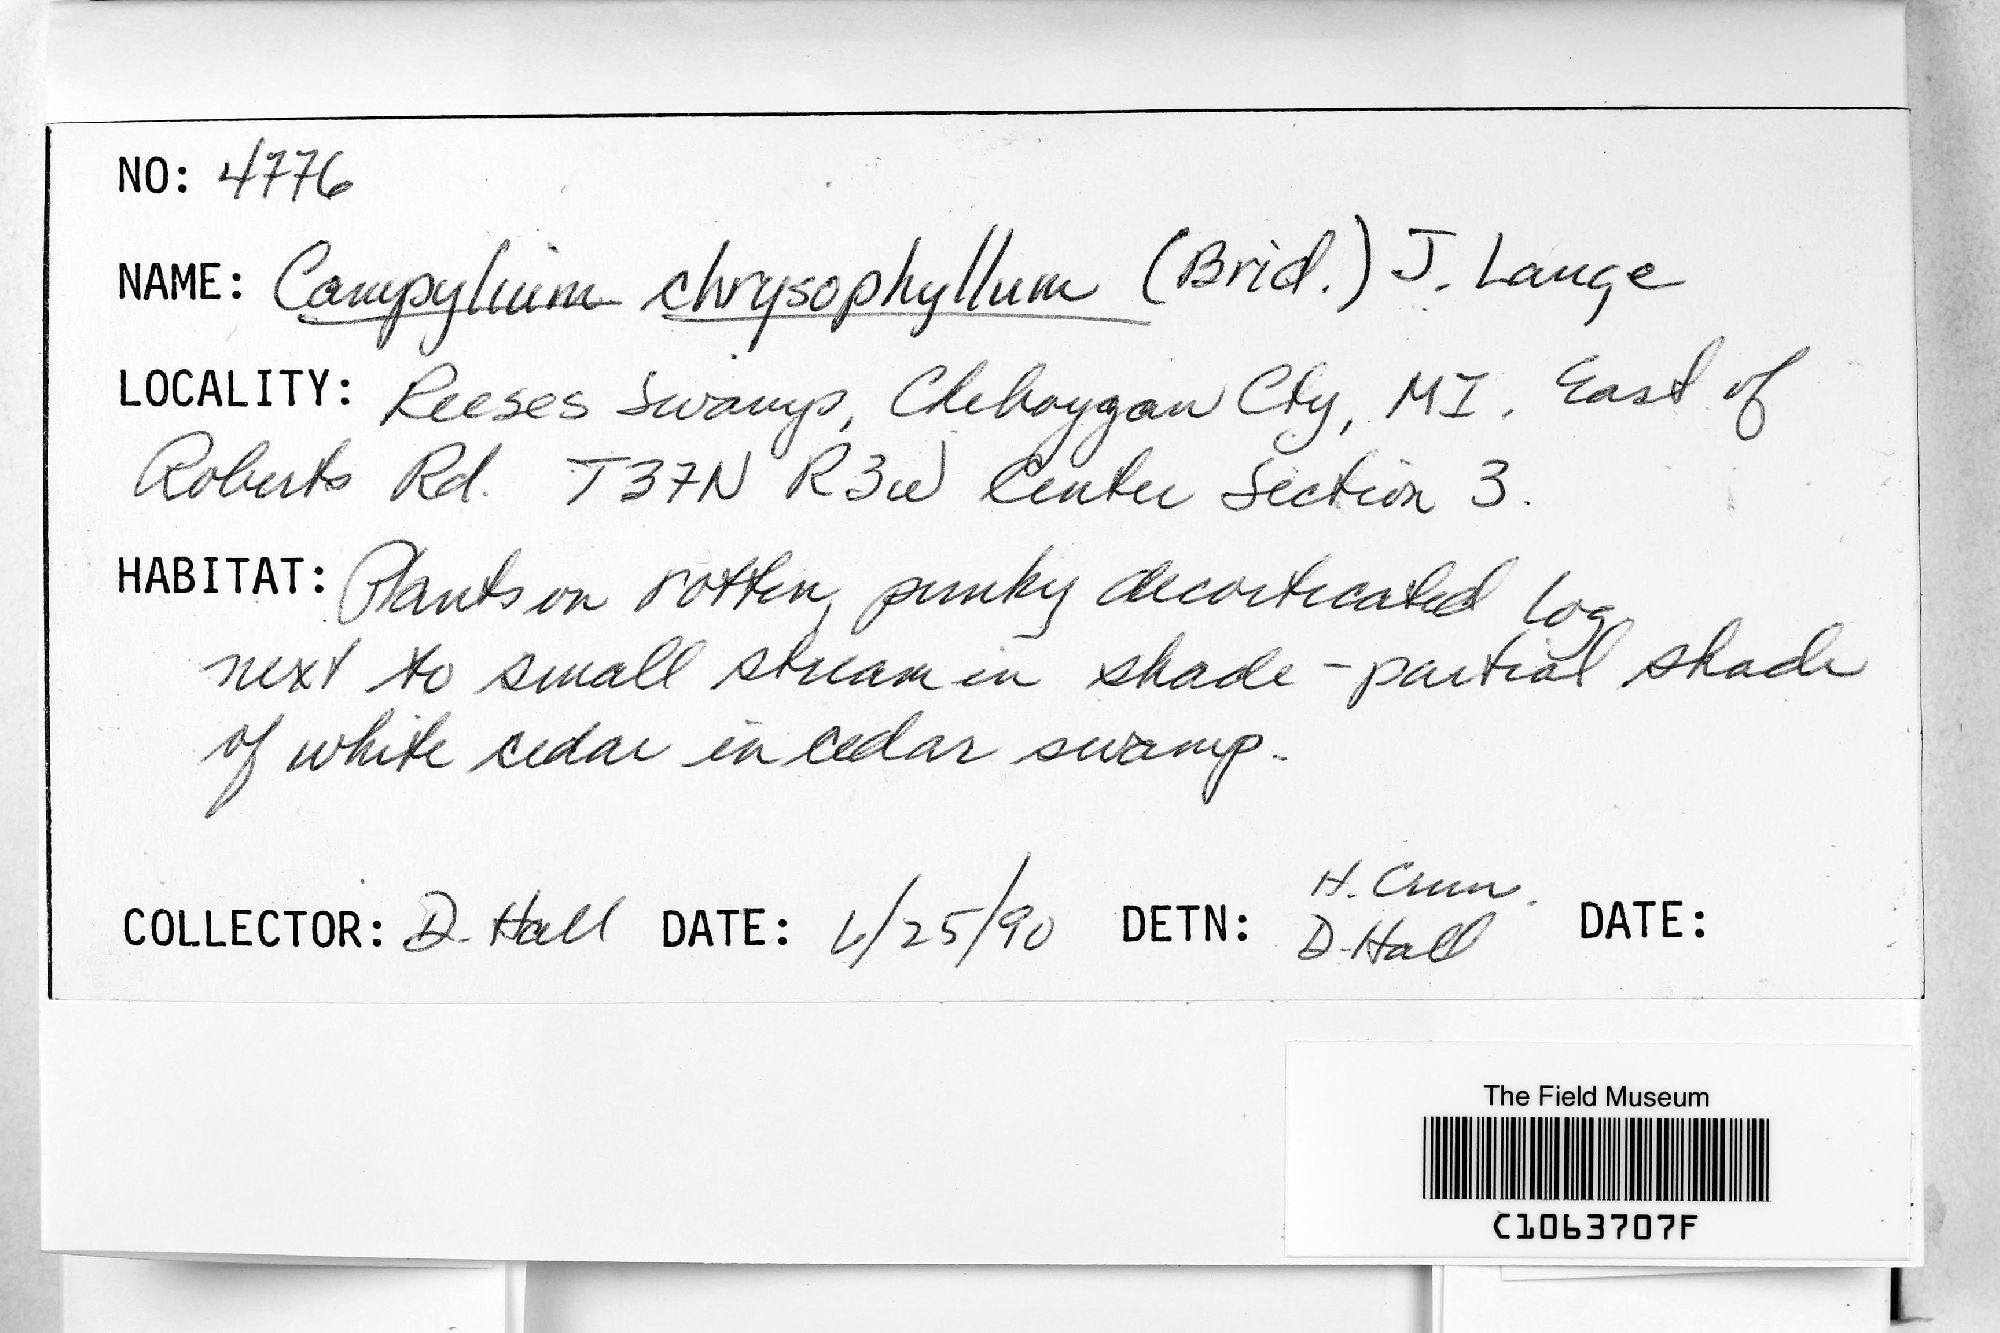 NO: 4776
NAME: Campylium chrysophyllum (Brid.) J. Lange
LOCALITY: Reeses Swamp, Cheboygan Cty, MI. East of
Roberts Rd. T37N R3W Center Section 3.
HABITAT: Plants on rotten, punky decorticated log
next to small stream in shade - partial shade
of white cedar in cedar swamp.
COLLECTOR: D. Hall DATE: 6/25/90 DETN: H. Crum. D. Hall DATE:
The Field Museum
C1063707F